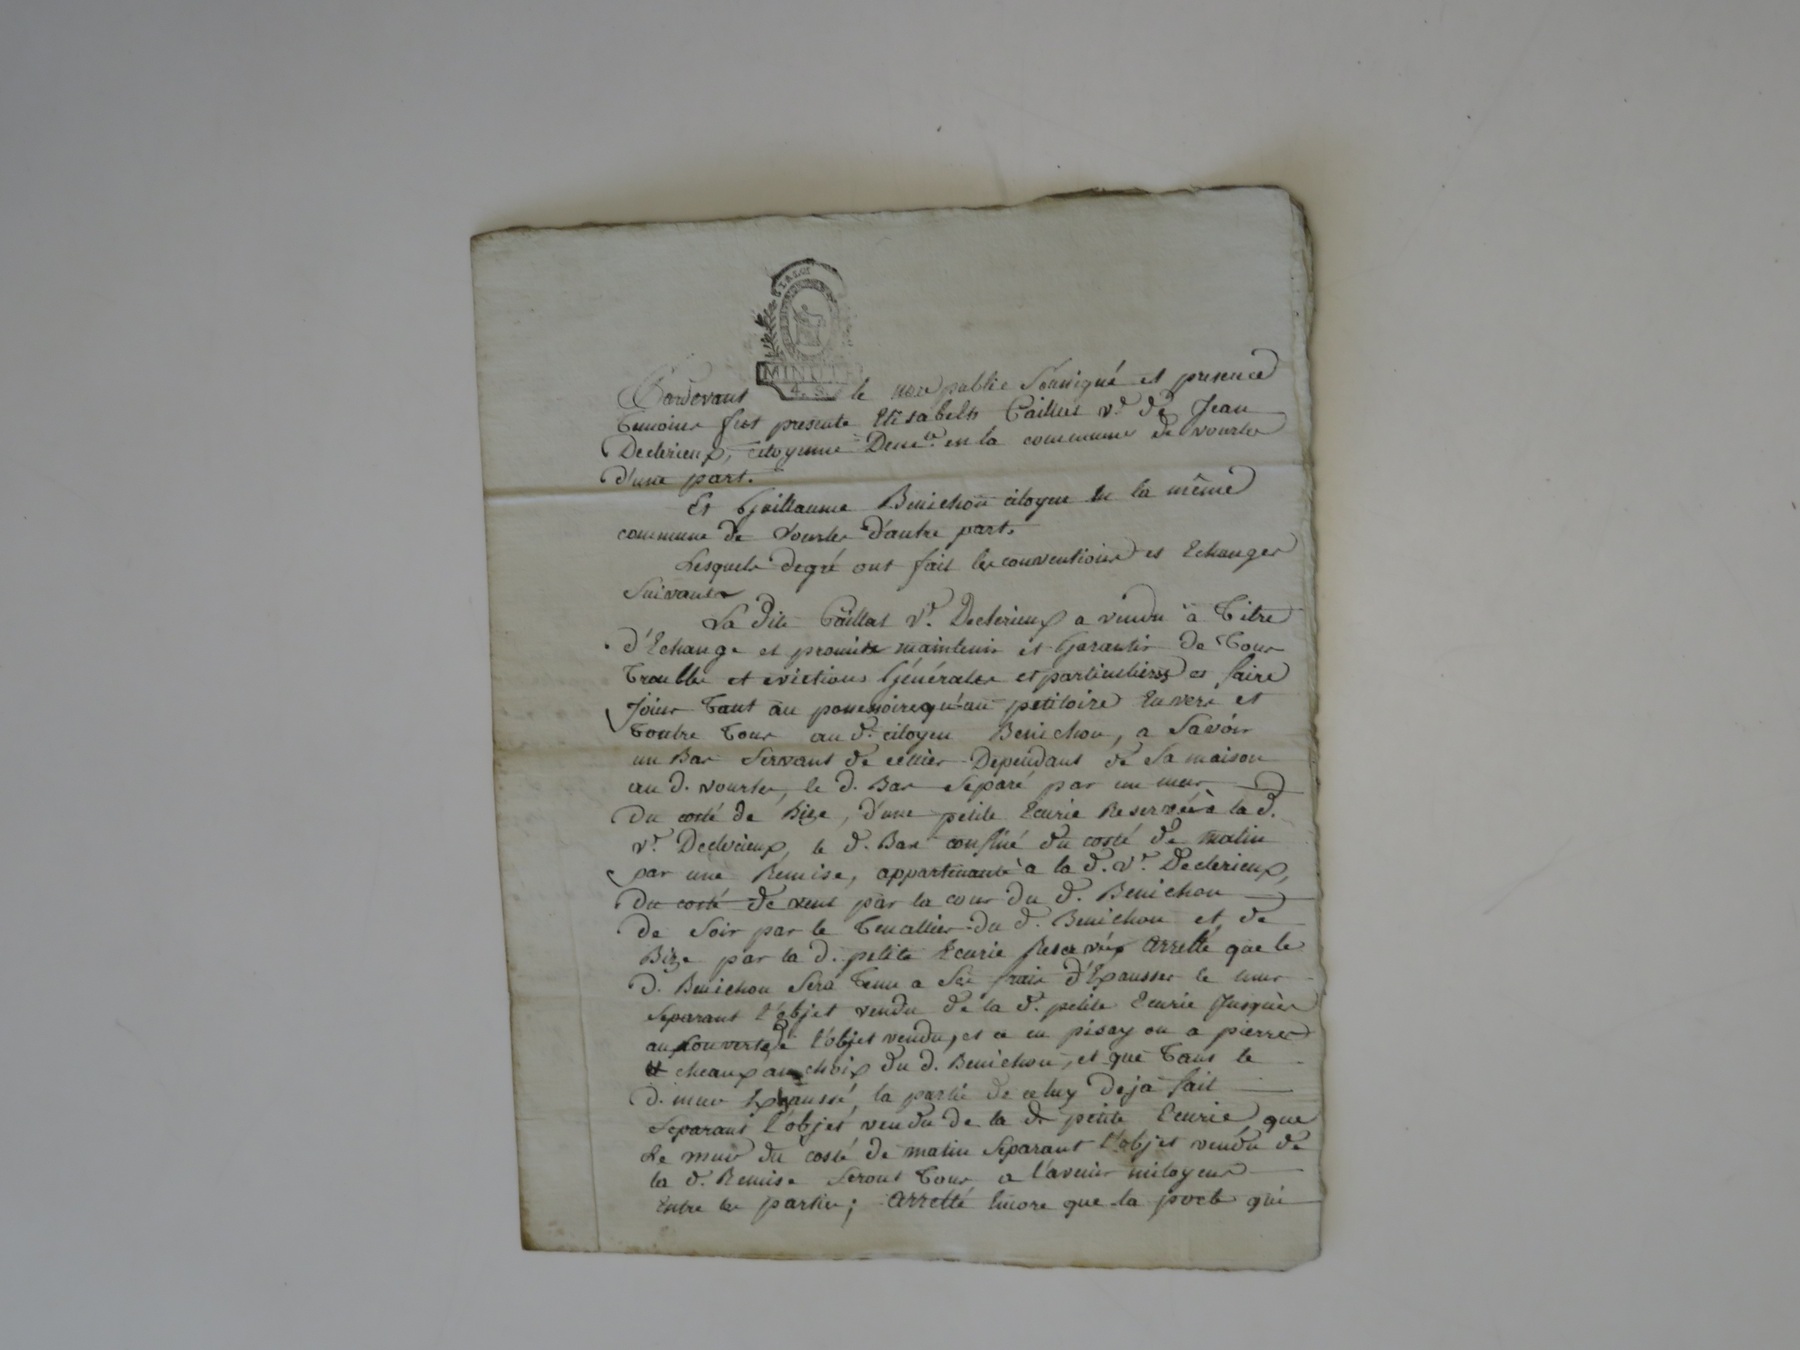 LA LOI
MINUTE
4. S.
Pardevant le nore public Soussigné et presence
temoins fut presente Elisabeth Caillat ve. de Jean
Declerieux, citoyenne Demte. en la commune de vourles
d'une part.
Et Guillaume Benichon citoyen de la même
commune de Vourles d'autre part.
Lesquels degré ont fait les conventions et Echanges
Suivants
La dite Caillat Ve. Declerieux a vendu à Titre
d'Echange et promis maintenir et Garantir de Tous
Troubles et evictions Générales et particuliers et faire
Jouir Tant au possessoire qu'au petitoire Envers et
Contre Tous au d. citoyen Benichon, a Savoir
un Bas Servant de cellier Dependant de Sa maison
au d. vourles, le d. Bas Séparé par un mur
Du costé de Bize, d'une petite Ecurie Reservée à la d.
ve. Declerieux, le d. Bas confiné du costé de matin
par une Remise, appartenante à la d. Ve. Declerieux,
Du costé de vent par la cour du d. Benichon
de Soir par le Tenallier du d. Benichon et de
Bize par la d. petite Ecurie Reservée, arretté que le
d. Benichon Sera Tenu a Ses frais d'Exausser le mur
Separant l'objet vendu de la d. petite Ecurie Jusques
au Couvert de l'objet vendu, et ce en pisay ou a pierres
et cheaux au choix du d. Benichon, et que Tant le
d. mur Exhaussé, la partie de celuy deja fait
Separant l'objet vendu de la de petite Ecurie, que
Le mur du costé de matin Séparant l'objet vendu de
la d. Remise Seront Tous a l'avenir mitoyens
Entre les parties ; arretté Encore que la porte qui